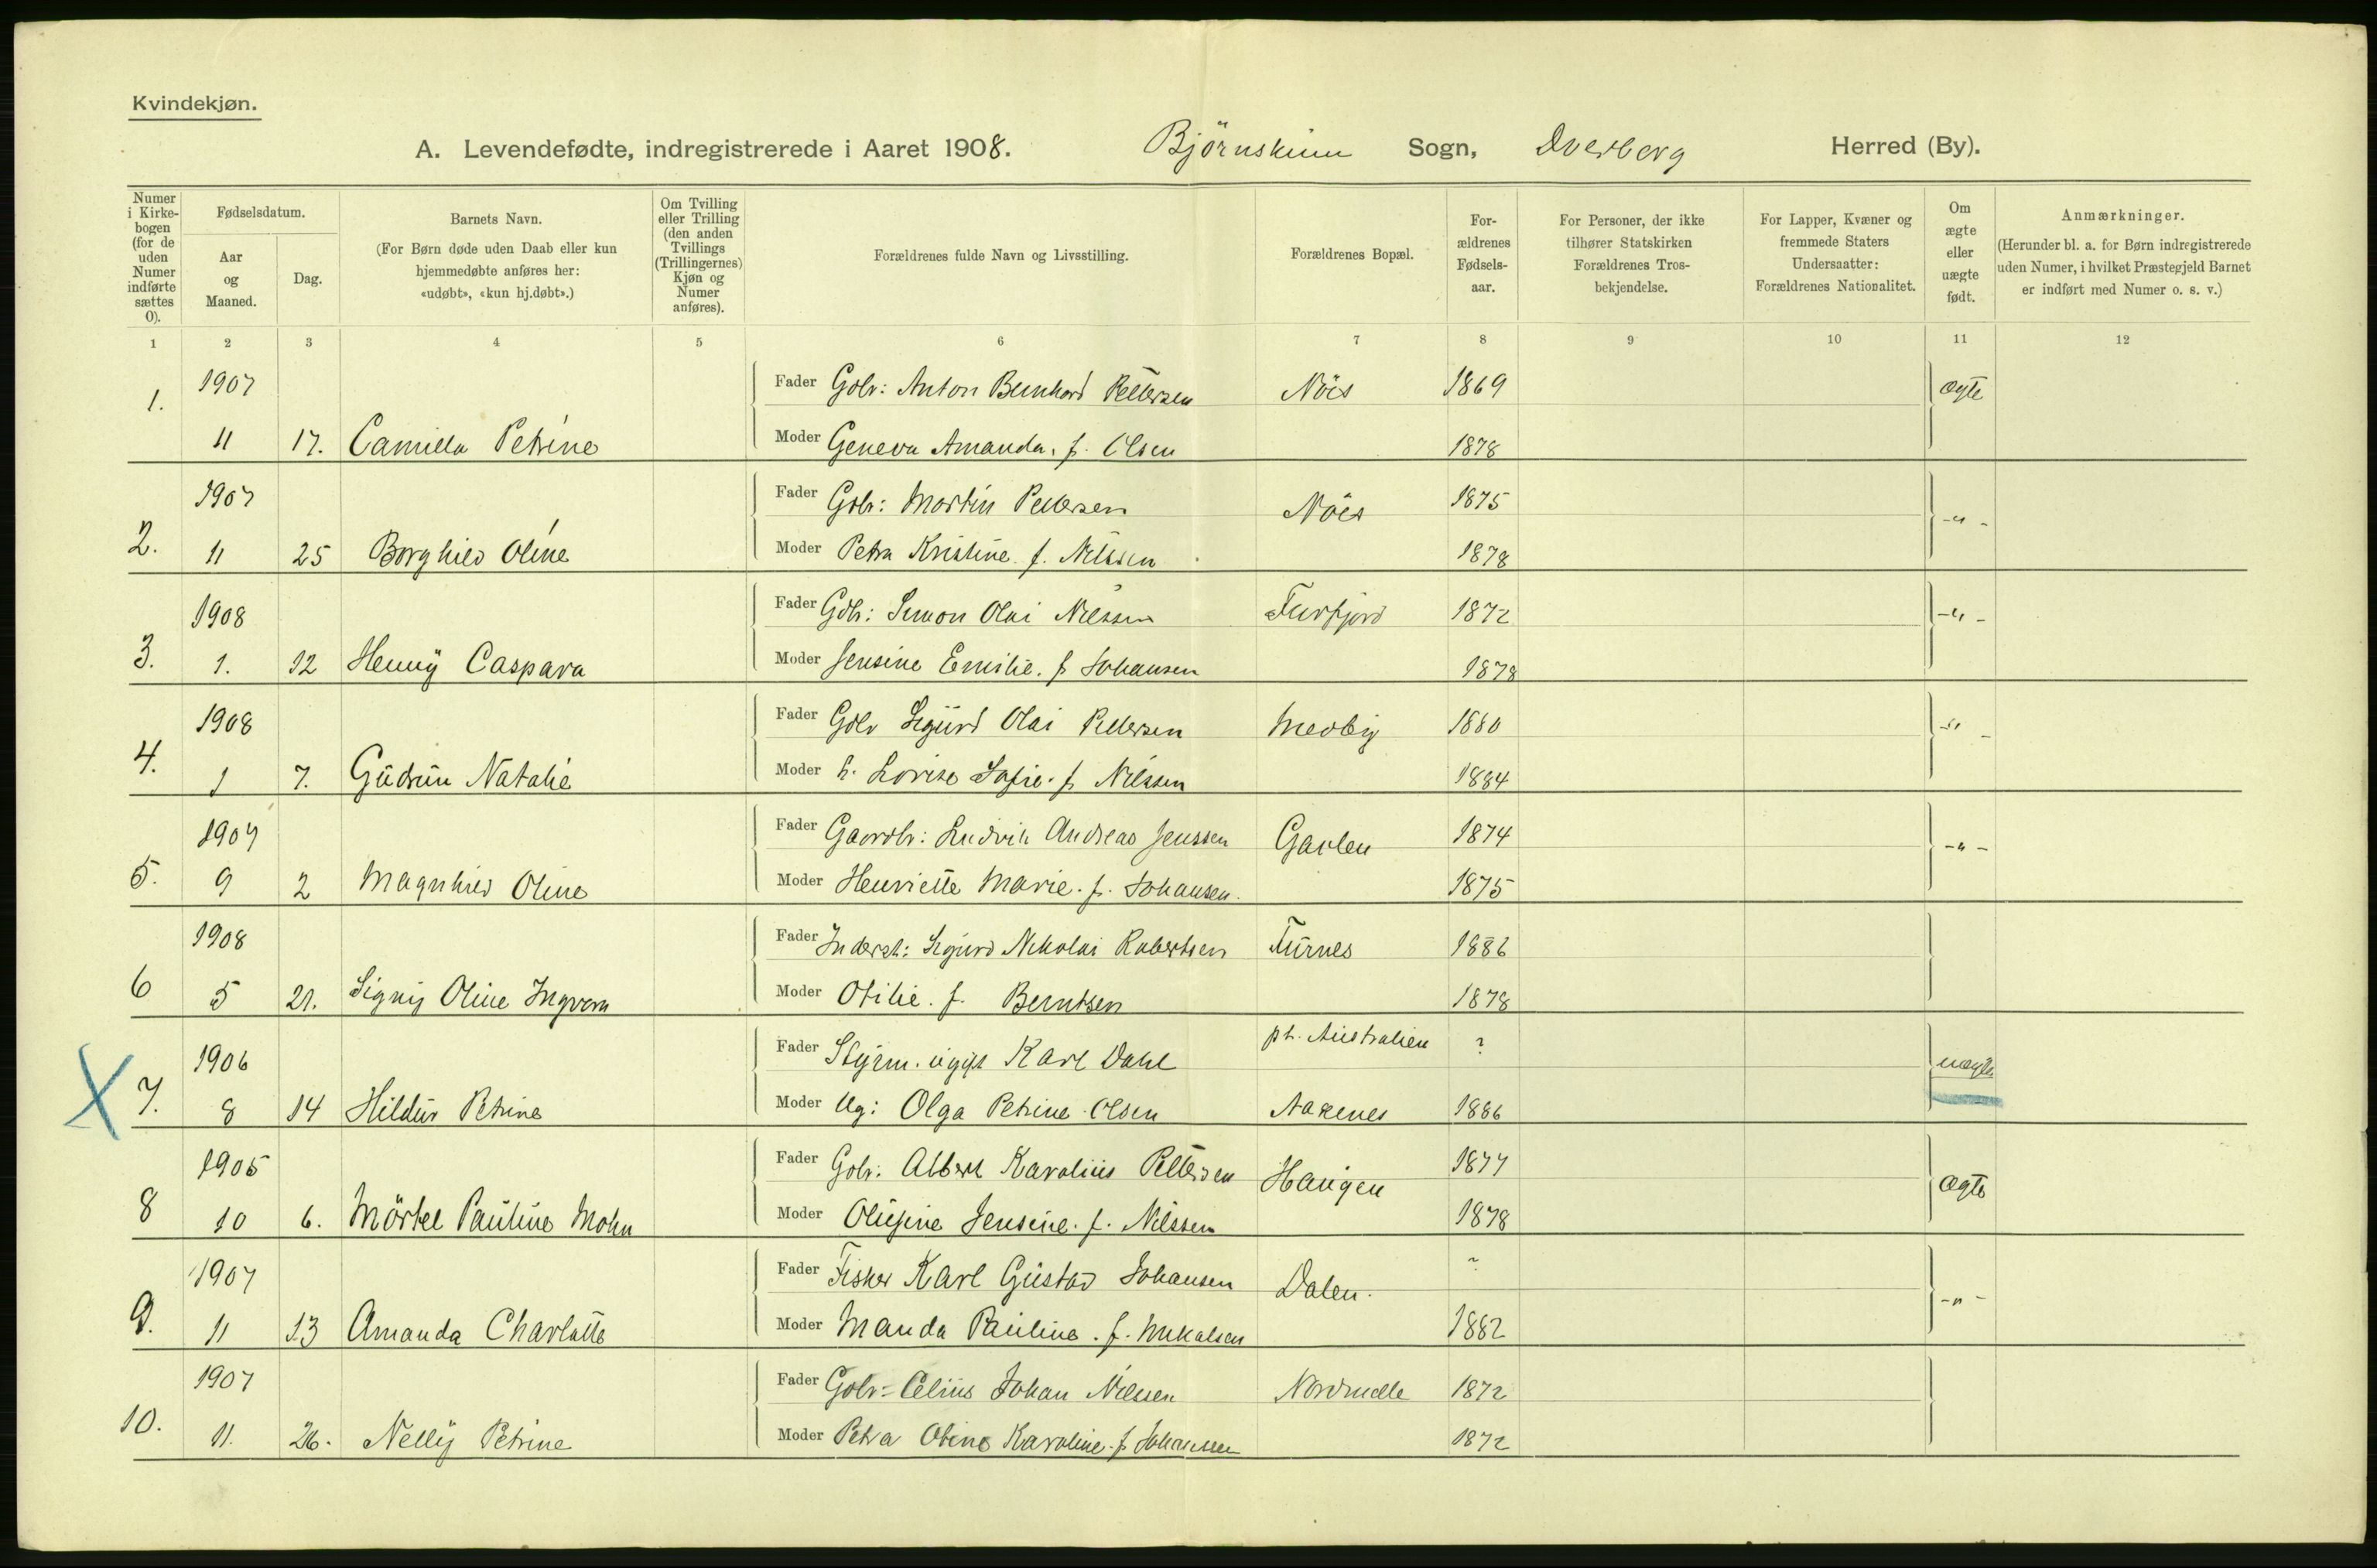 Kvindekjøn.
A. Levendefødte, indregistrerede i Aaret 1908. Björnskinn Sogn, Dverberg Herred (By).
Numer i Kirkebogen (for de uden Numer indførte sættes 0).
Fødselsdatum.
Aar og Maaned.
Dag.
Barnets Navn.
(For Børn døde uden Daab eller kun hjemmedøbte anføres her: «udøbt», «kun hj.døbt».)
Om Tvilling eller Trilling (den anden Tvillings (Trillingernes) Kjøn og Numer anføres).
Forældrenes fulde Navn og Livsstilling.
Forældrenes Bopæl.
Forældrenes Fødselsaar.
For Personer, der ikke tilhører Statskirken Forældrenes Trosbekjendelse.
For Lapper, Kvæner og fremmede Staters Undersaatter: Forældrenes Nationalitet.
Om ægte eller uægte født.
Anmærkninger.
(Herunder bl. a. for Børn indregistrerede uden Numer, i hvilket Præstegjeld Barnet er indført med Numer o. s. v.)
1 2 3 4 5 6 7 8 9 10 11 12
1. 1907 Fader Gbr: Anton Bernhard Pettersen Nöis 1869 ægte
11 17. Camilla Petrine Moder Geneva Amanda. f. Olsen 1878
2. 1907 Fader Gbr: Martin Pettersen Nöis 1875 -"-
11 25 Borghild Oline Moder Petra Kristine f. Nilssen 1878
3. 1908 Fader Gdbr: Simon Olai Nilssen 1872 -"-
1. 12 Henny Caspara Moder Jensine Emilie. f. Johansen 1878
4. 1908 Fader Gdbr Sigurd Olai Pettersen Medby 1880 -"-
1 7. Gudrun Natalie Moder h. Lovise Sofie. f. Nilssen 1884
5. 1907 Fader Gaardbr: Ludvik Andreas Jenssen Gavlen 1874 -"-
9 2 Magnhild Oline Moder Henriette Marie. f. Johansen. 1875
6 1908 Fader Inderst: Sigurd Nikolai Robertsen 1886
5 21. Signy Oline Ingvara Moder Otilie. f. Berntsen 1878
7. 1906 Fader Styrm. ugift Karl Dahl pt. Australien ? uægte
8 14 Hildur Petrine Moder Ug: Olga Petrine Olsen Aasenes 1886
8 1905 Fader Gbr: Albert Karolius Pettersen Haugen 1877 ægte
10 6. Mörtel Pauline Mohn Moder Olufine Jensine. f. Nilssen 1878
9. 1907 Fader Fisker Karl Gustav Johansen Dalen. ? -"-
11 13 Amanda Charlotte Moder Manda Pauline. f. Mikalsen 1882
10. 1907 Fader Gbr: Celius Johan Nilssen Nordmelle 1872
11. 26. Nelly Petrine Moder Petra Oline Karoline. f. Johansen 1872